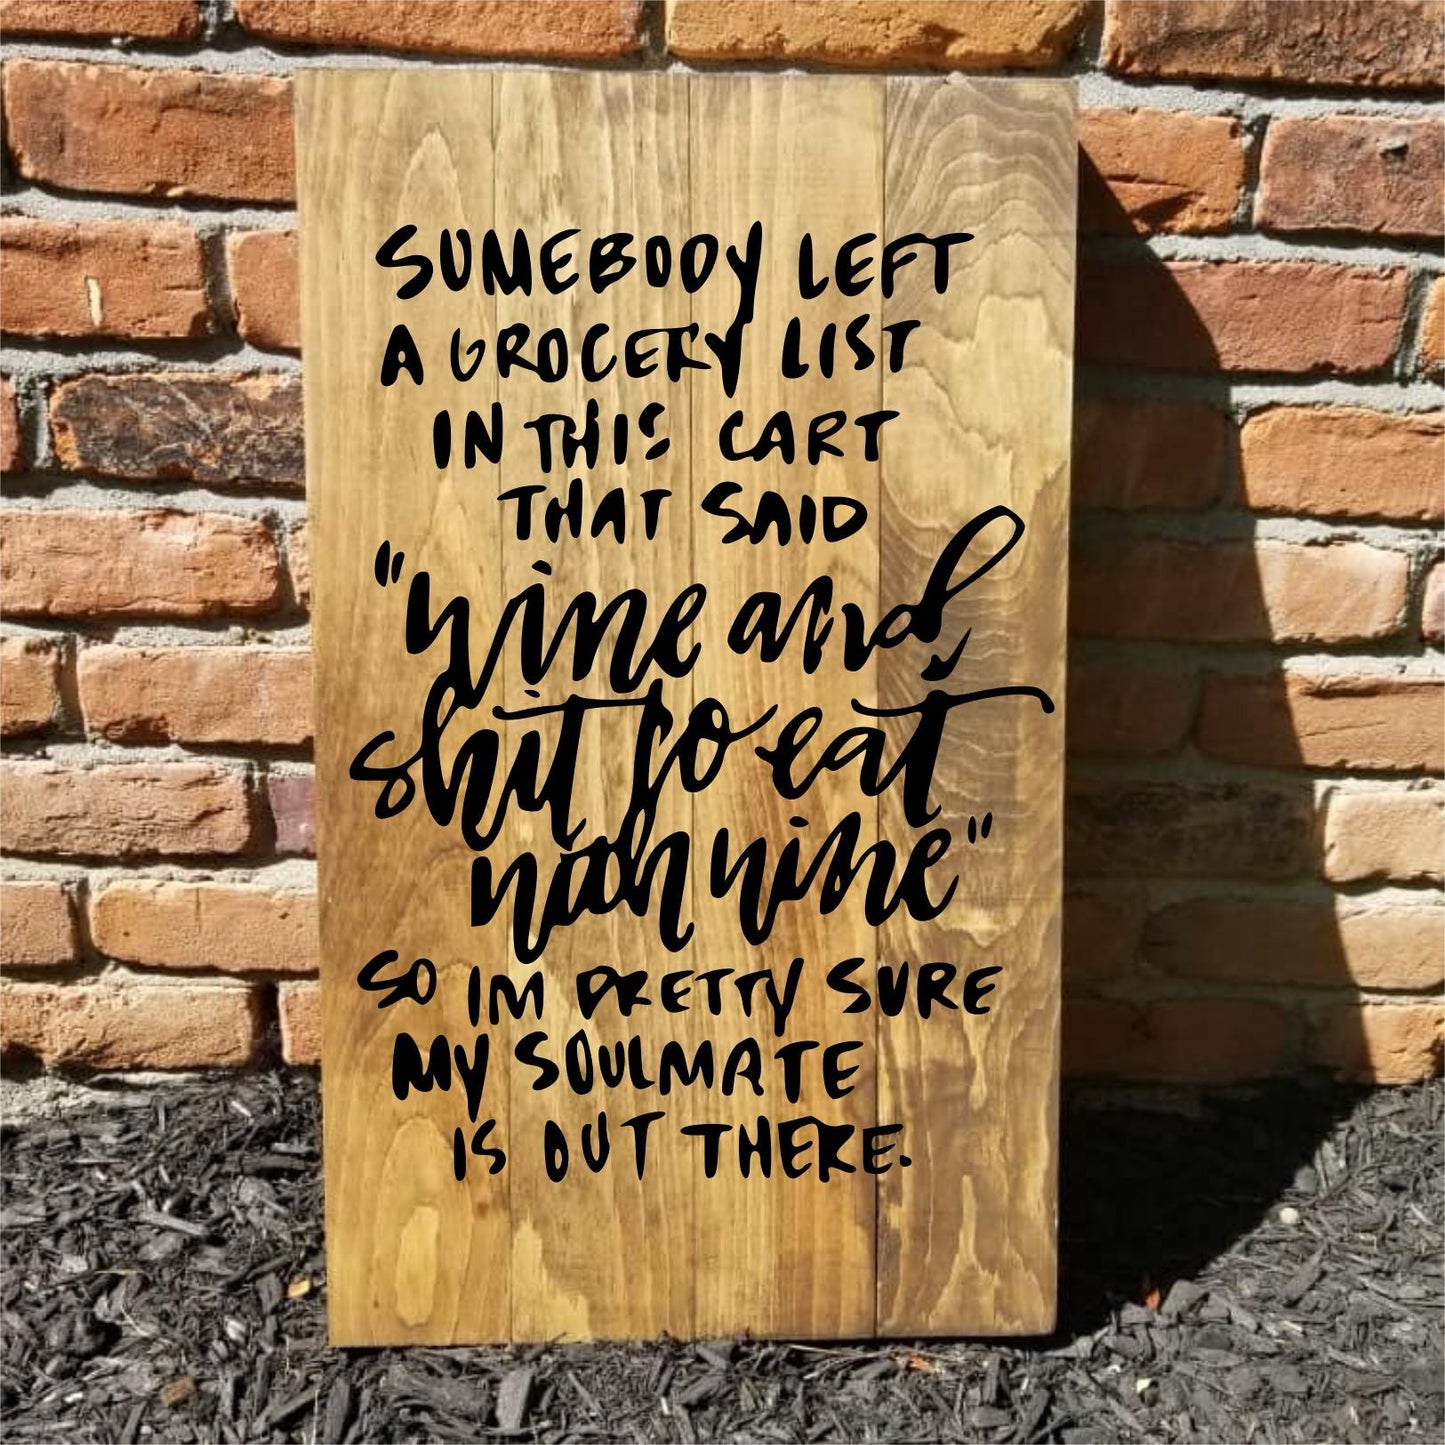 SOMEBODY LEFT
A GROCERY LIST
IN THIS CART
THAT SAID
"wine and
shit to eat
with wine"
SO IM PRETTY SURE
MY SOULMATE
IS OUT THERE.